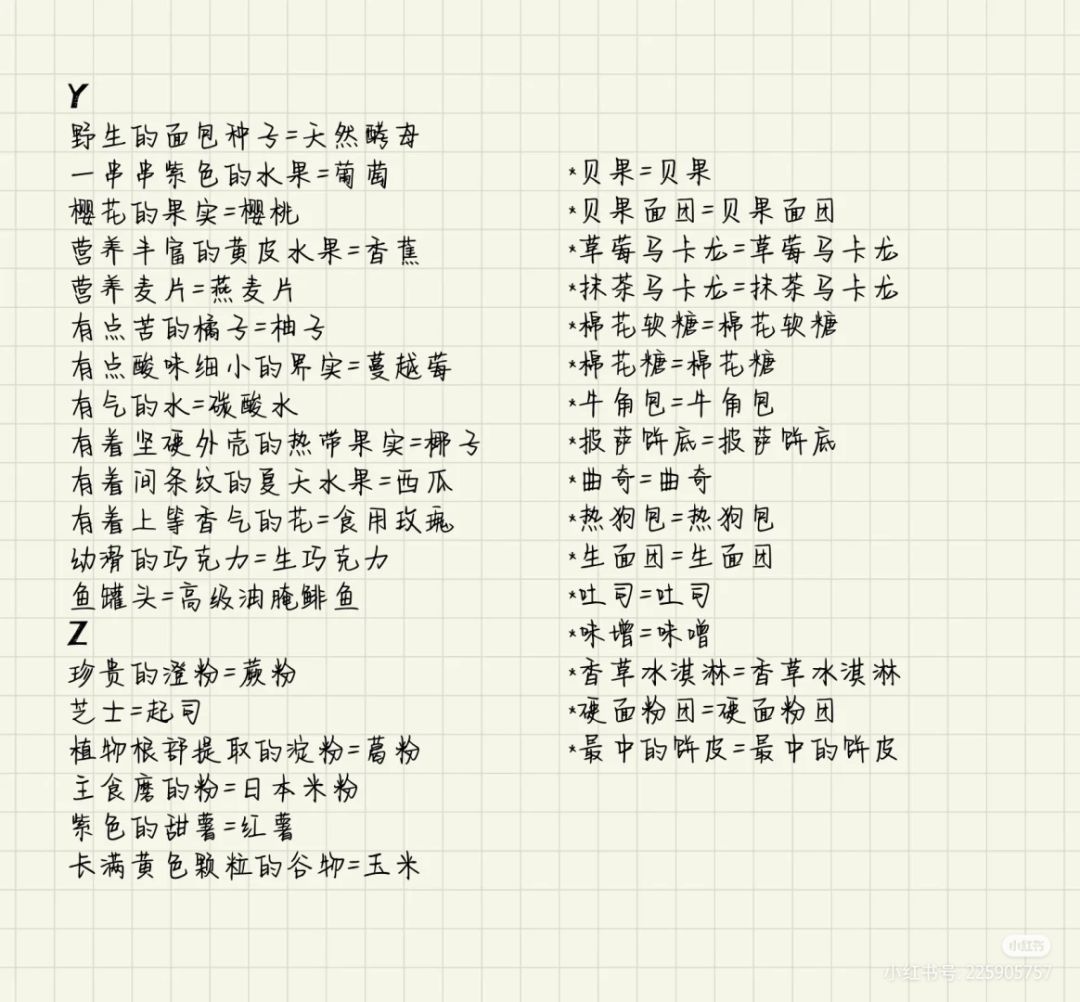 Y
野生的面包种子=天然酵母
一串串紫色的水果=葡萄
樱花的果实=樱桃
营养丰富的黄皮水果=香蕉
营养麦片=燕麦片
有点苦的橘子=柚子
有点酸味细小的界实=蔓越莓
有气的水=碳酸水
有着坚硬外壳的热带果实=椰子
有着间条纹的夏天水果=西瓜
有着上等香气的花=食用玫瑰
幼滑的巧克力=生巧克力
鱼罐头=高级油腌鲱鱼
Z
珍贵的澄粉=蕨粉
芝士=起司
植物根部提取的淀粉=葛粉
主食磨的粉=日本米粉
紫色的甜薯=红薯
卡满黄色颗粒的谷物=玉米
*贝果=贝果
*贝果面团=贝果面团
*草莓马卡龙=草莓马卡龙
*抹茶马卡龙=抹茶马卡龙
*棉花软糖=棉花软糖
*棉花糖=棉花糖
*牛角包=牛角包
*披萨饼底=披萨饼底
*曲奇=曲奇
*热狗包=热狗包
*生面团=生面团
*吐司=吐司
*味增=味噌
*香草冰淇淋=香草冰淇淋
*硬面粉团=硬面粉团
*最中的饼皮=最中的饼皮
小红书
小红书号: 225905757